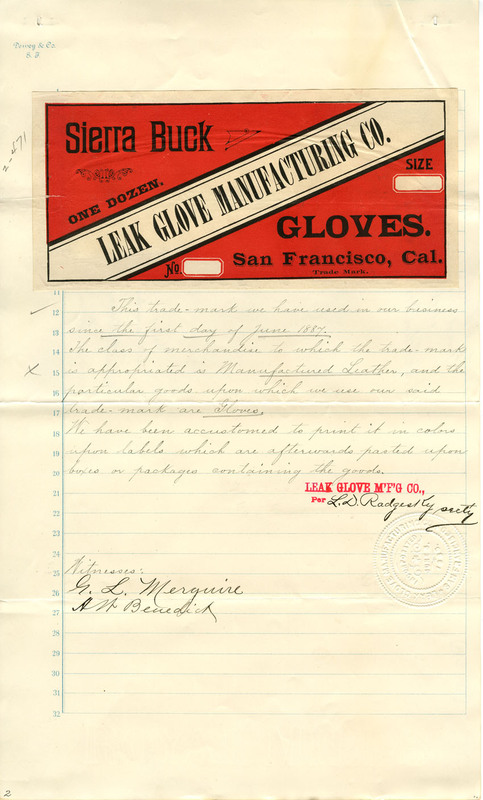 Dewey & Co.
S. F.
Sierra Buck
ONE DOZEN.
LEAK GLOVE MANUFACTURING CO.
SIZE
GLOVES.
No.
San Francisco, Cal.
Trade Mark.
11
12 This trade-mark we have used in our business
13 since the first day of June 1887.
14 The class of merchandise to which the trade-mark
15 is appropriated is Manufactured Leather, and the
16 particular goods upon which we use our said
17 trade-mark are Gloves,
18 We have been accustomed to print it in colors
19 upon labels which are afterwards pasted upon
20 boxes or packages containing the goods.
21 LEAK GLOVE M'F'G CO.,
22 Per L. D. Radgesky secty
23
24
25 Witnesses:
26 G. L. Merguire
27 A W Benedict
28
29
30
31
32
2